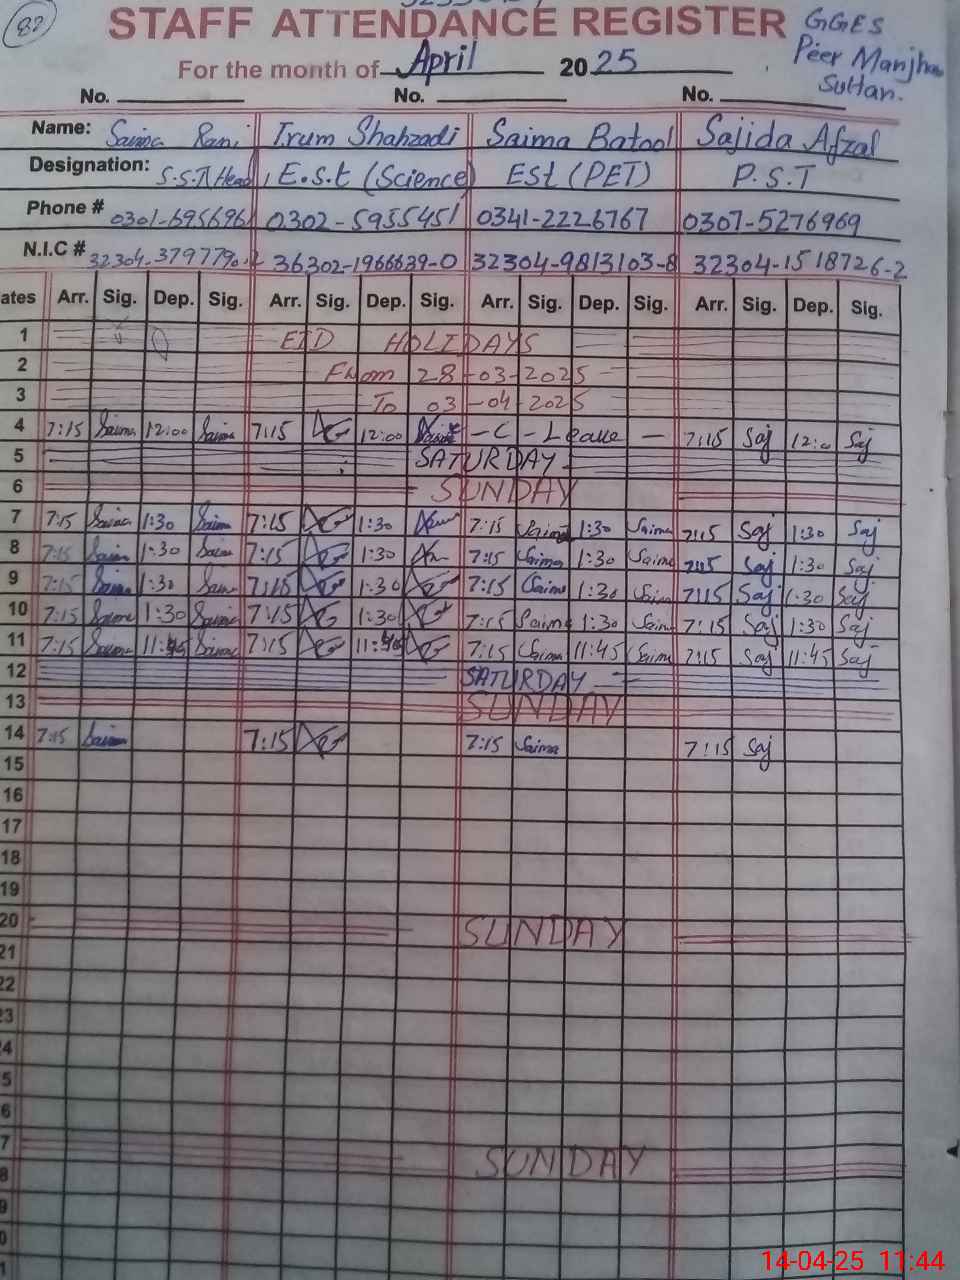 82
STAFF ATTENDANCE REGISTER
GGES
Peer Manjhan
Sultan.
For the month of April 2025
No. No. No.
Name: Saima Rani Irum Shahzadi Saima Batool Sajida Afzal
Designation: S.S.T/Head, E.S.t (Science) ESt (PET) P.S.T
Phone # 0302-5955451 0341-2226767 0307-5276969
N.I.C # 36302-1966639-0 32304-9813103-8 32304-1518726-2
ates Arr. Sig. Dep. Sig. Arr. Sig. Dep. Sig. Arr. Sig. Dep. Sig. Arr. Sig. Dep. Sig.
1 EID HOLIDAYS
2 From 28-03-2025
3 To 03-04-2025
4 7:15 Saima 12:00 Saima 7:15 12:00 -C-Leave- 7:15 Saj 12:0 Saj
5 SATURDAY
6 SUNDAY
7 7:15 Saima 1:30 Saima 7:15 1:30 7:15 Saima 1:30 Saima 7:15 Saj 1:30 Saj
8 7:15 Saim 1:30 Saim 7:15 1:30 7:15 Saima 1:30 Saima 7:15 Saj 1:30 Saj
9 7:15 Saima 1:30 Saim 7:15 1:30 7:15 Saima 1:30 Saim 7:15 Saj 1:30 Saj
10 7:15 Saima 1:30 Saima 7:15 1:30 7:15 Saima 1:30 Saim 7:15 Saj 1:30 Saj
11 7:15 Saima 11:45 Saima 7:15 11:45 7:15 Saima 11:45 Saima 7:15 Saj 11:45 Saj
12 SATURDAY
13 SUNDAY
14 7:15 Saim 7:15 7:15 Saima 7:15 Saj
15
16
17
18
19
20 SUNDAY
21
22
23
4
5
6
7 SUNDAY
8
9
0
1
14-04-25 11:44